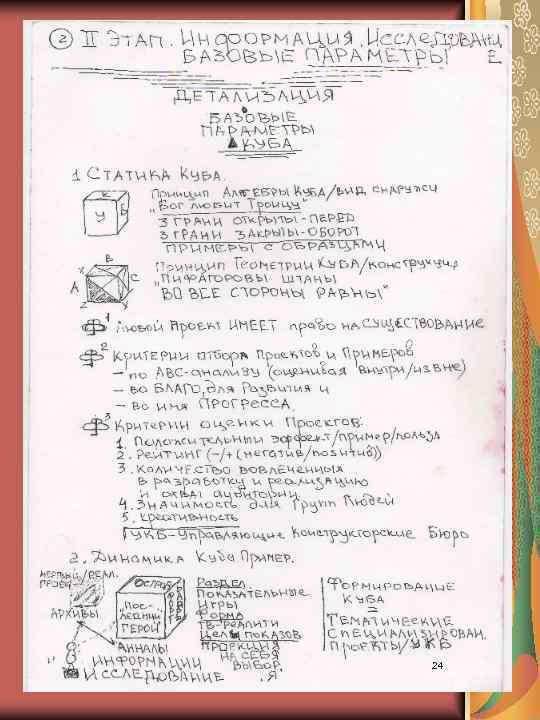 ② II ЭТАП. ИНФООРМАЦИЯ. ИССЛЕДОВАНИЕ
БАЗОВЫЕ ПАРАМЕТРЫ
ДЕТАЛИЗАЦИЯ
БАЗОВЫЕ
ПАРАМЕТРЫ
КУБА
1 СТАТИКА КУБА.
К
У Б
Принцип АЛГЕБРЫ КУБА/ВИД СНАРУЖИ
„БОГ ЛЮБИТ ТРОИЦУ"
3 ГРАНИ ОТКРЫТЫ-ПЕРЕД
3 ГРАНИ ЗАКРЫТЫ-ОБОРОТ
ПРИМЕРЫ С ОБРАЗЦАМИ
B
X
A C
Z X
Принцип ГЕОМЕТРИИ КУБА/КОНСТРУКЦИЯ
„ПИФАГОРОВЫ ШТАНЫ
ВО ВСЕ СТОРОНЫ РАВНЫ"
1 Любой проект ИМЕЕТ право на СУЩЕСТВОВАНИЕ
2 Критерии отбора Проектов и Примеров
– по АВС-анализу (оценивая внутри/извне)
– во БЛАГО, для Развития и
– во имя ПРОГРЕССА.
3 Критерии оценки Проектов:
1. Положительный эффект/пример/польза
2. Рейтинг (–/+(негатив/позитив))
3. Количество вовлеченных
в разработку и реализацию
и охват аудитории
4. Значимость для Групп Людей
5. Креативность
УКБ-Управляющие Конструкторские Бюро
2. ДИНАМИКА Куба ПРИМЕР.
/РЕАЛ.
ПРОЕКТ
АРХИВЫ
ОСТРОВ
„ПОС-
ЛЕДНИЙ
ГЕРОЙ"
АННАЛЫ
ИНФОРМАЦИИ
ИССЛЕДОВАНИЕ
РАЗДЕЛ
ПОКАЗАТЕЛЬНЫЕ
ИГРЫ
ФОРМА
ТВ-РЕАЛИТИ
ЦЕЛЬ ПОКАЗОВ
ПРОЕКЦИЯ
НА СЕБЯ
ВЫБОР
„Я"
ФОРМИРОВАНИЕ
КУБА
=
ТЕМАТИЧЕСКИЕ
СПЕЦИАЛИЗИРОВАН.
ПРОЕКТЫ/УКБ
24